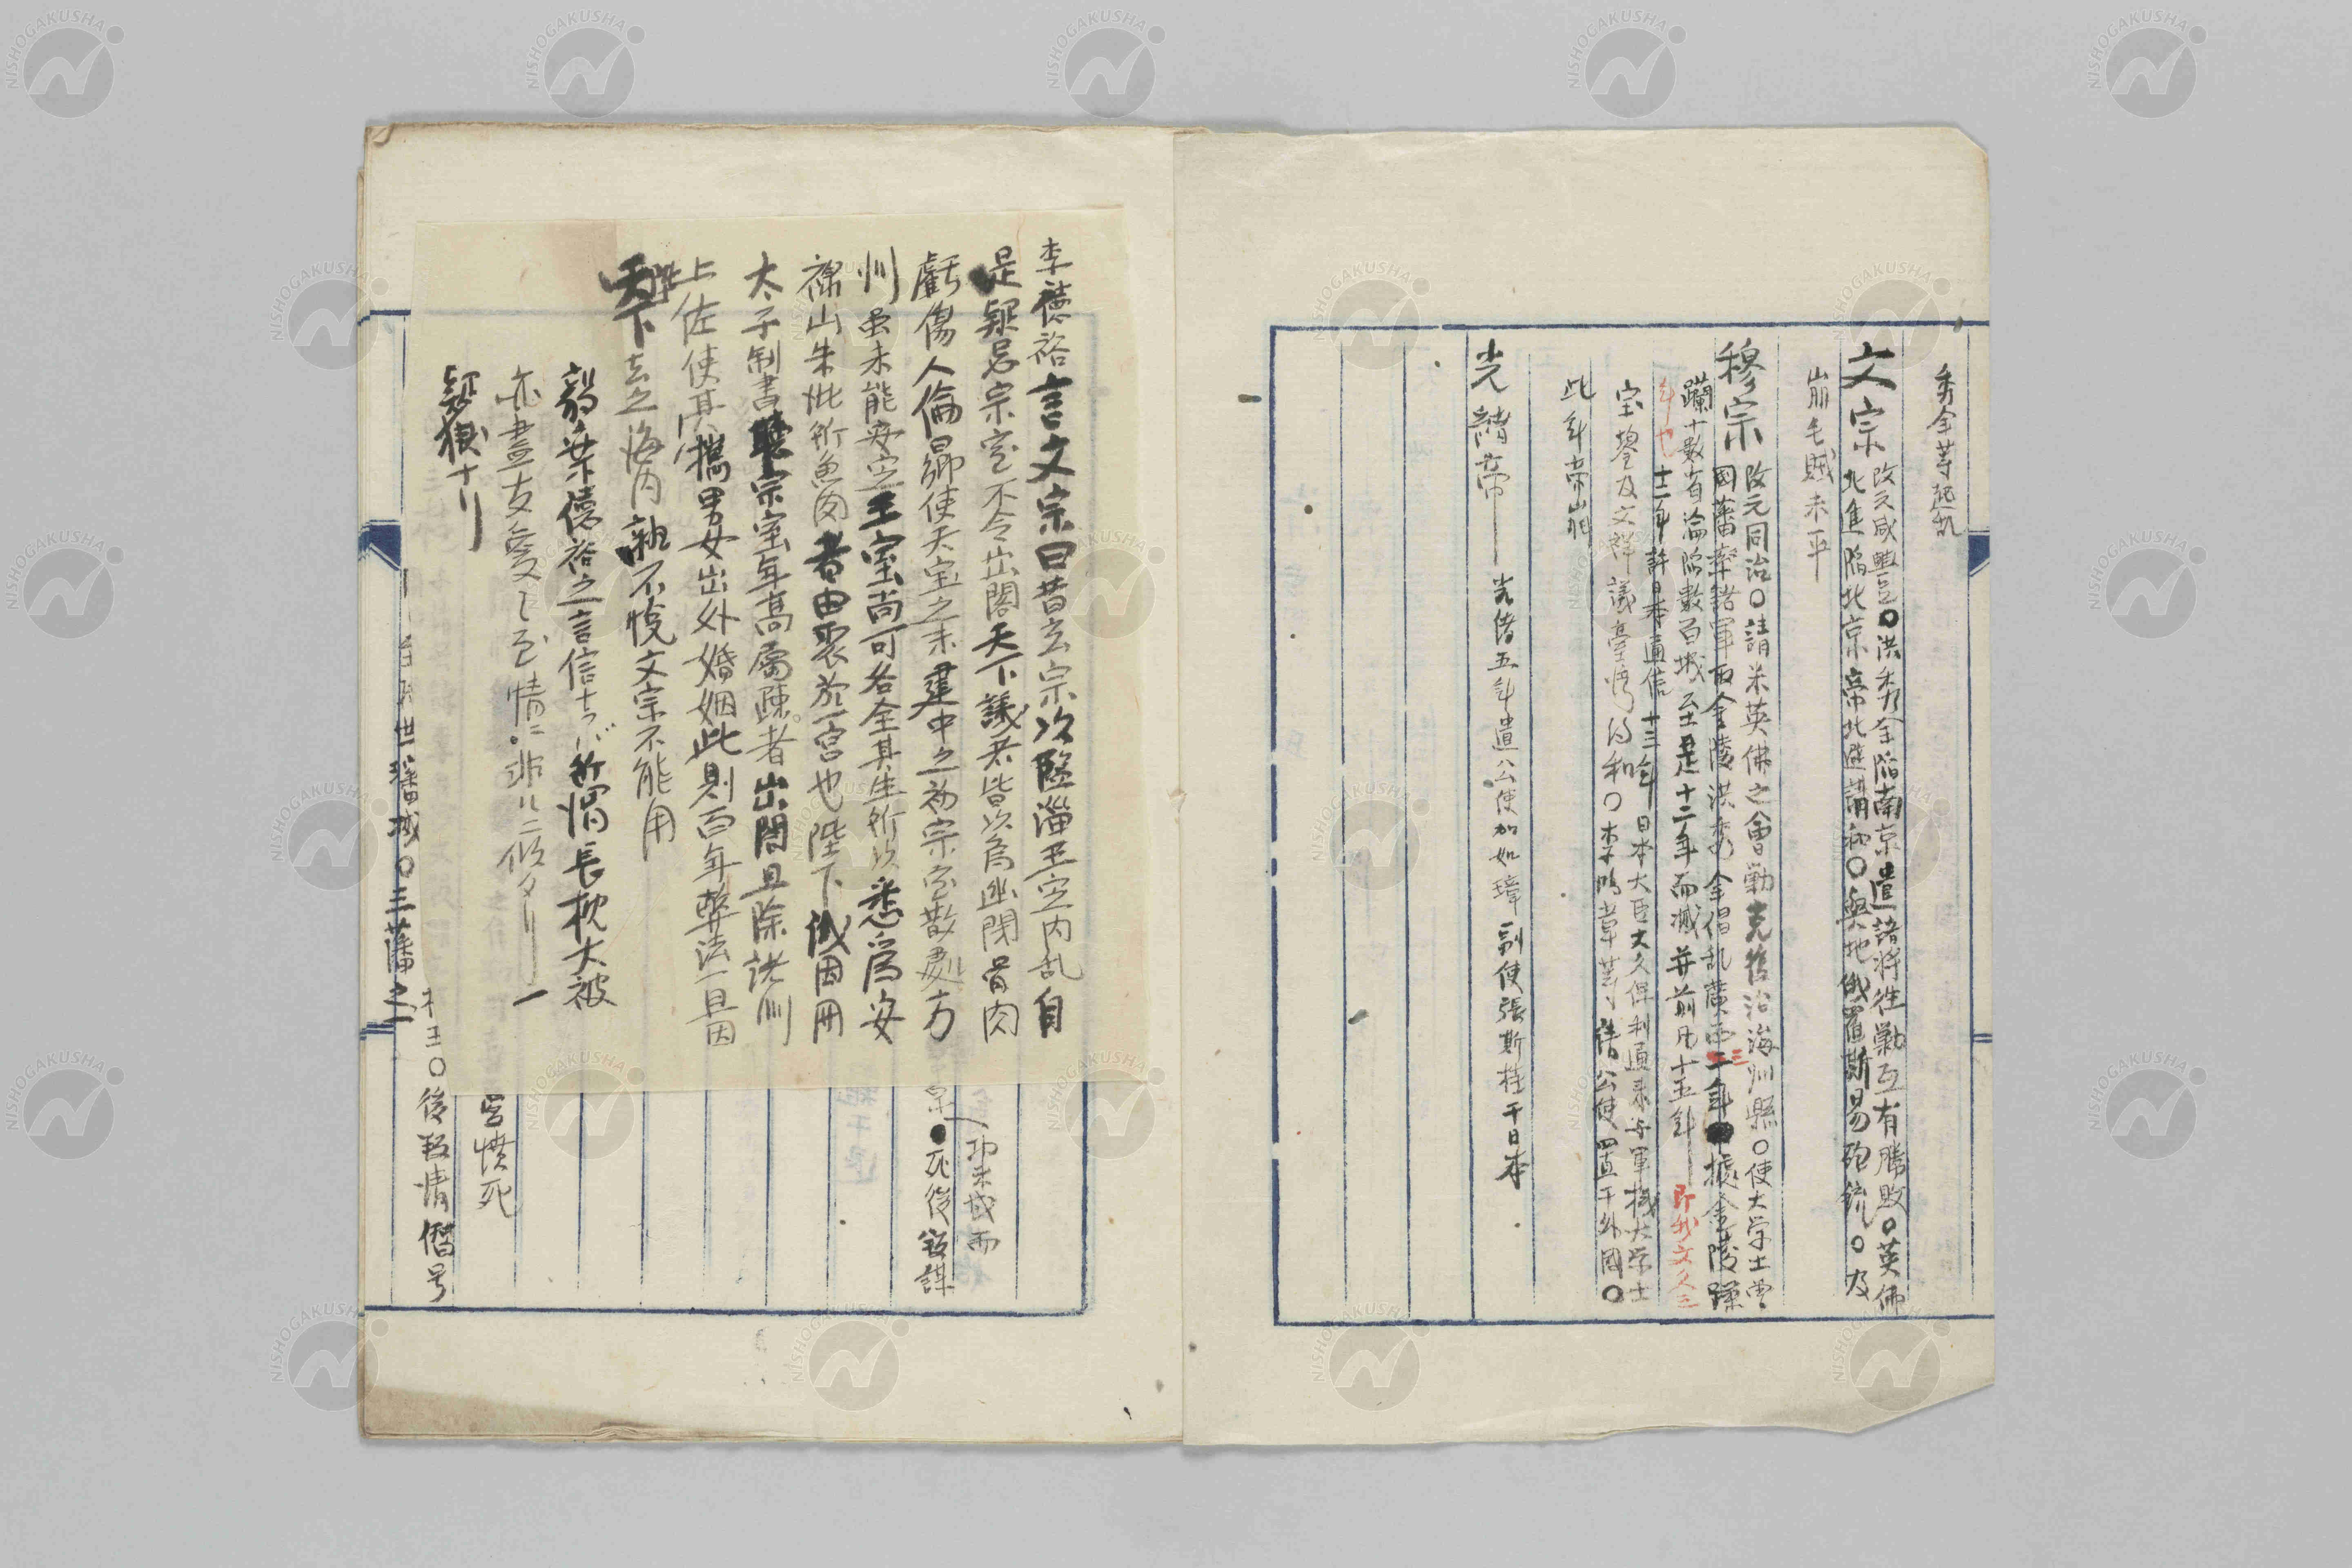 秀全等起乱
文宗
改元咸豊〇洪秀全陷南京遣諸将往勦互有勝敗〇英佛
北進陷北京帝北避講和〇與地俄羅斯易砲銃〇及
崩毛賊未平
穆宗
改元同治〇請米英佛之會勦克復沿海州縣〇使大学士曽
國藩率諸軍取金陵洪秀全倡乱廣西三年據金陵蹂
躪十数省淪陷数百城至是十二年而滅并前凡十五年 即我文久三
年也
十二年許日本通信十三年日本大臣大久保利通来与軍機大学士
宝鋆及文祥議臺湾約和〇李鳴章等請公使置于外國〇
此年帝崩
光緒帝
光緒五年遣公使加如璋副使張斯桂于日本
李徳裕言文宗曰昔玄宗以臨淄王定内乱自
是疑忌宗室不令出閣天下議者皆以為幽閉骨肉
虧傷人倫曏使天宝之末建中之初宗室散處方
州虽未能安定王室尚可各全其生所以悉為安
禄山朱泚所魚肉者由聚於一宮也陛下誠因冊
太子制書聴宗室年高属疎者出閤且除諸州
上佐使其携男女出外婚姻此則百年弊法一旦因
陛下去之海内孰不悦文宗不能用
毅案徳裕之言信ナラバ所謂長枕大被
亦盡友愛ノ至情ニ非ルニ似タリ
疑獄ナリ
功来域而
〇死後叙謀
宮憤死
王〇後叛清僭号
世璠滅〇三藩之一